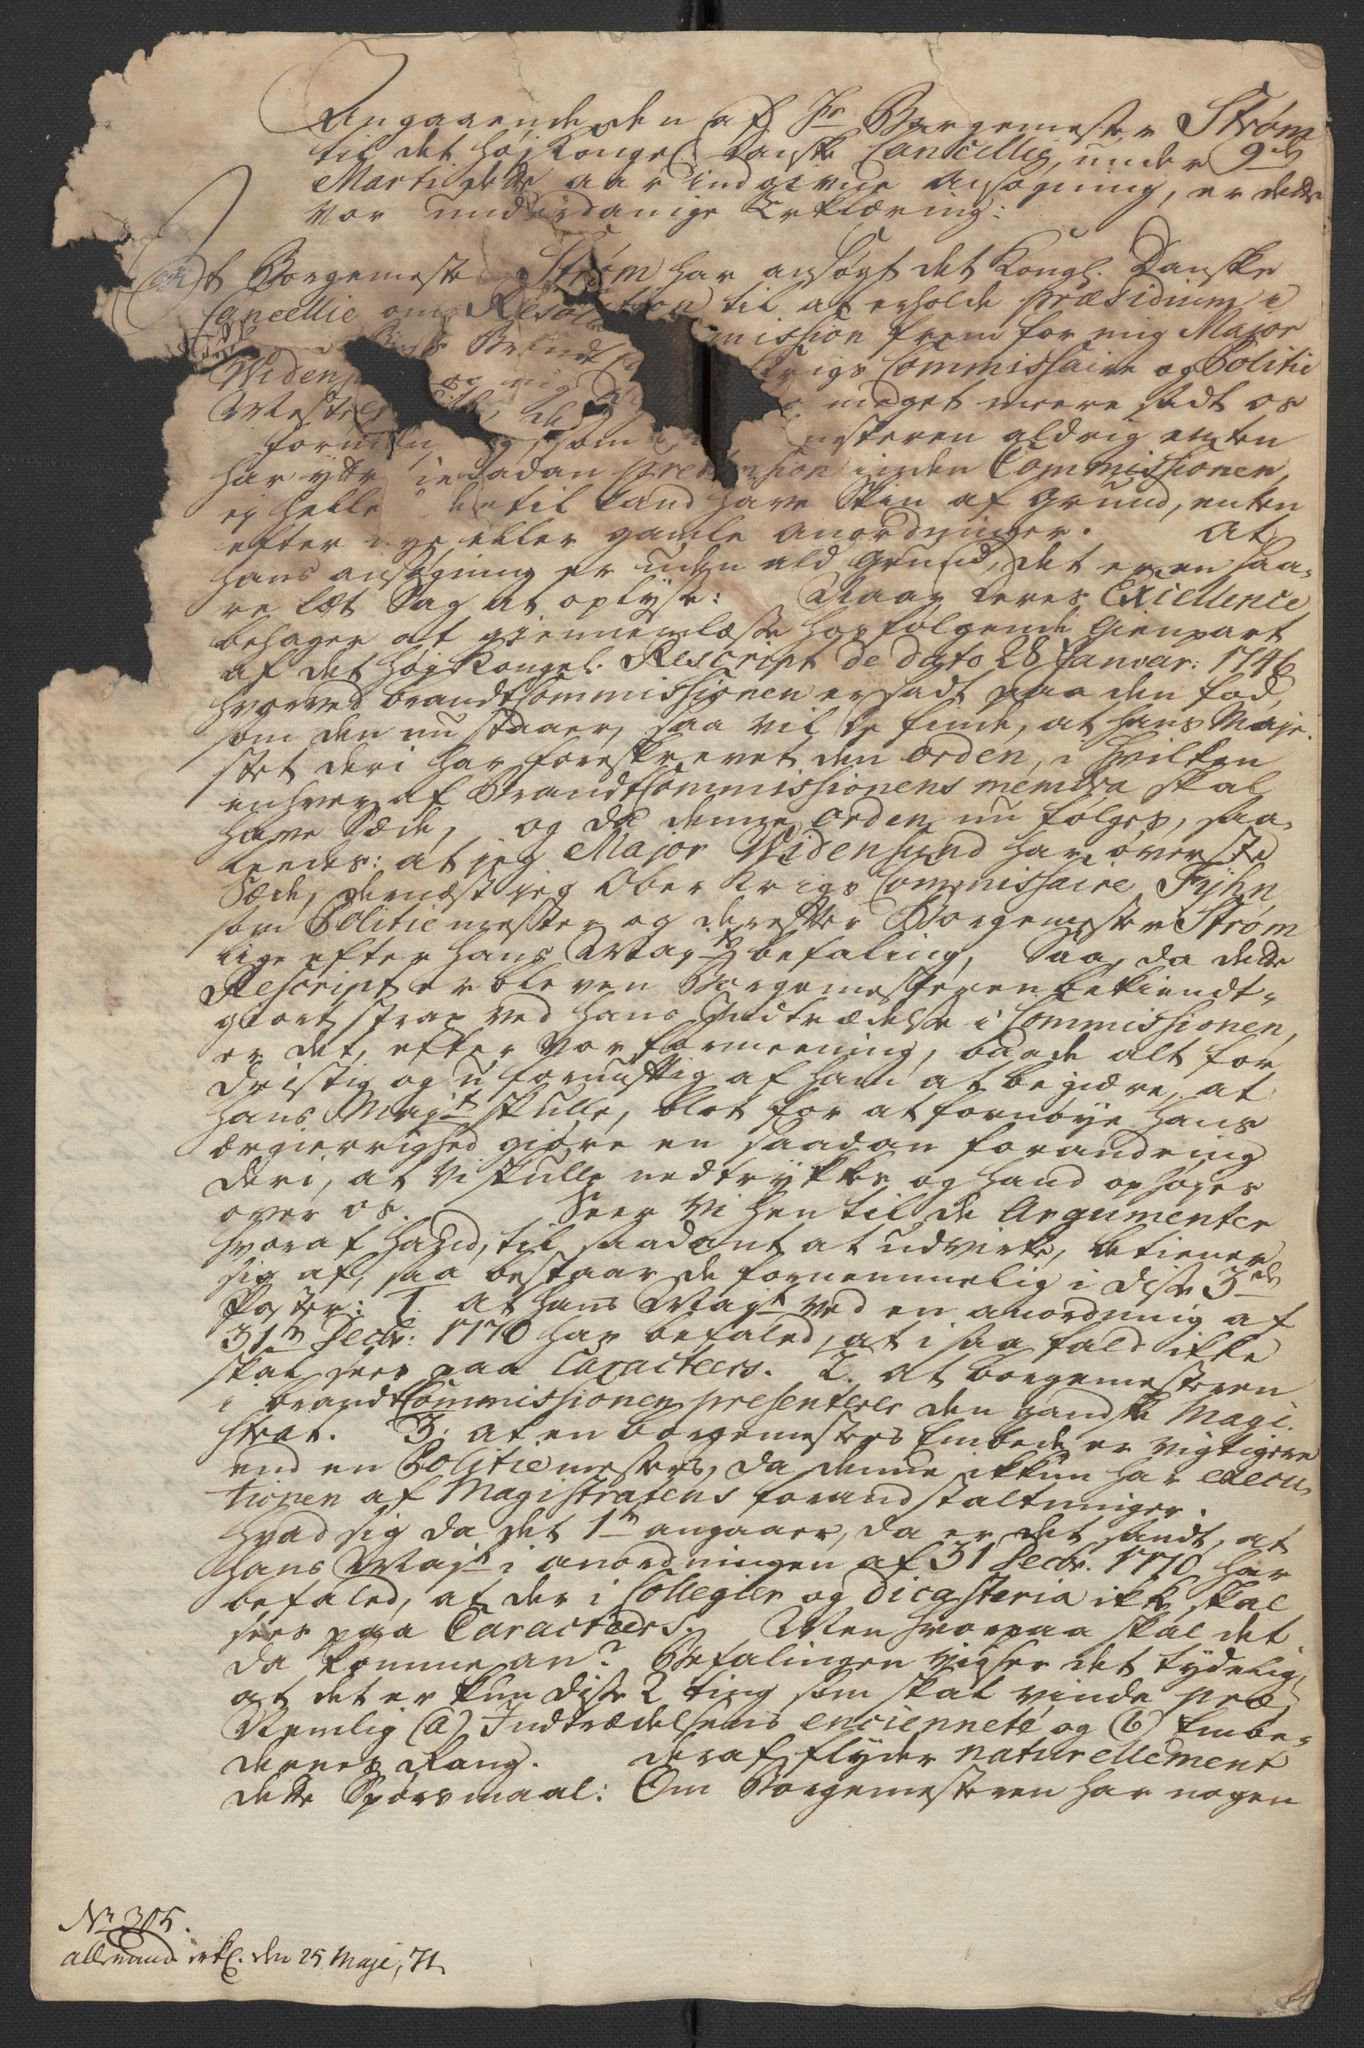 Angaaende den af Hr Borgemester Strøm
til det høj Kongel. Danske Cancellie, under 9de
Marti dette aar indgivne ansøgning, er dette
vor underdanige Erklæring:
At Borgemester Strøm har ansøgt det Kongl. Danske
Cancellie om Resolution til at erholde præsidium i
Brandt mission frem for mig Major
Widen og mig Krigs Commissaire og Politie
Mester meget meere sadt os
forun som mesteren aldrig enten
har ytt saadan prætension inden Commissionen,
ej helle dertil kand have skin af grund, enten
efter nye eller gamle anordninger. At
hans ansøgning er uden ald Grund, det er en saa-
re læt Sag at oplyse: Naar deres Excellence
behager at giennemlæse hosfølgende Gienpart
af det høj Kongel. Rescript de dato 28 Januar: 1746
hvorved brandt Commissionen er sadt paa den fod,
som den nu staaer, saa vil de finde, at hans Maje-
stet deri har foreskrevet den orden, i hvilken
enhver af Brandt Commissionens membra skal
have Sæde, og da denne orden nu følges, saa-
leedes: at jeg Major Widensund har øverste
Sæde, dernæst jeg Ober Krigs Commissaire Fyhn,
som Politiemester og derefter Borgemester Strøm
lige efter hans Mayts befaling, Saa, da dette
Rescript er bleven Borgemesteren bekiendt-
giort strax ved hans Indtrædelse i Commissionen,
er det, efter vor formeening, baade alt for
dristig og ufornuftig af ham at begiære, at
hans Majt skulle, blot for at fornøye hans
ærgierrighed giøre en saadan forandring
deri, at vi skulle nedtrykkes og hand ophøyes
over os. Seer vi hen til de Argumenter
hvoraf hand, til saadant at udvirke, betiener
sig af, saa bestaar de fornemmelig i disse 3de
Poster: 1. at hans Mayt ved en anordning af
31te Decbr: 1770 har befaled, at i saa fald ikke
skal sees paa Caracteers. 2. at borgemesteren
i brandt Commissionen presenterer den gandske Magi-
strat. 3. at en borgemesters Embede er vigtigere
end en Politiemesters, da denne ikkun har execu-
tionen af Magistratens foranstaltninger.
Hvad sig da det 1te angaaer, da er det sandt, at
hans Majt i anordningen af 31 Decbr. 1770 har
befaled, at der i Collegier og Dicasteria ikke skal
sees paa Caracteers. Men hvorpaa skal det
da komme an? Befalingen viser det tydelig,
at det er kun disse 2 ting som skal vinde præ
Nemlig (a) Indtrædelsens encienneté og (b) Embe-
dernes Rang. deraf flyder naturellement
dette Spørsmaal: Om Borgemesteren har nogen
No 305.
all erkl. den 25 Maji, 71.